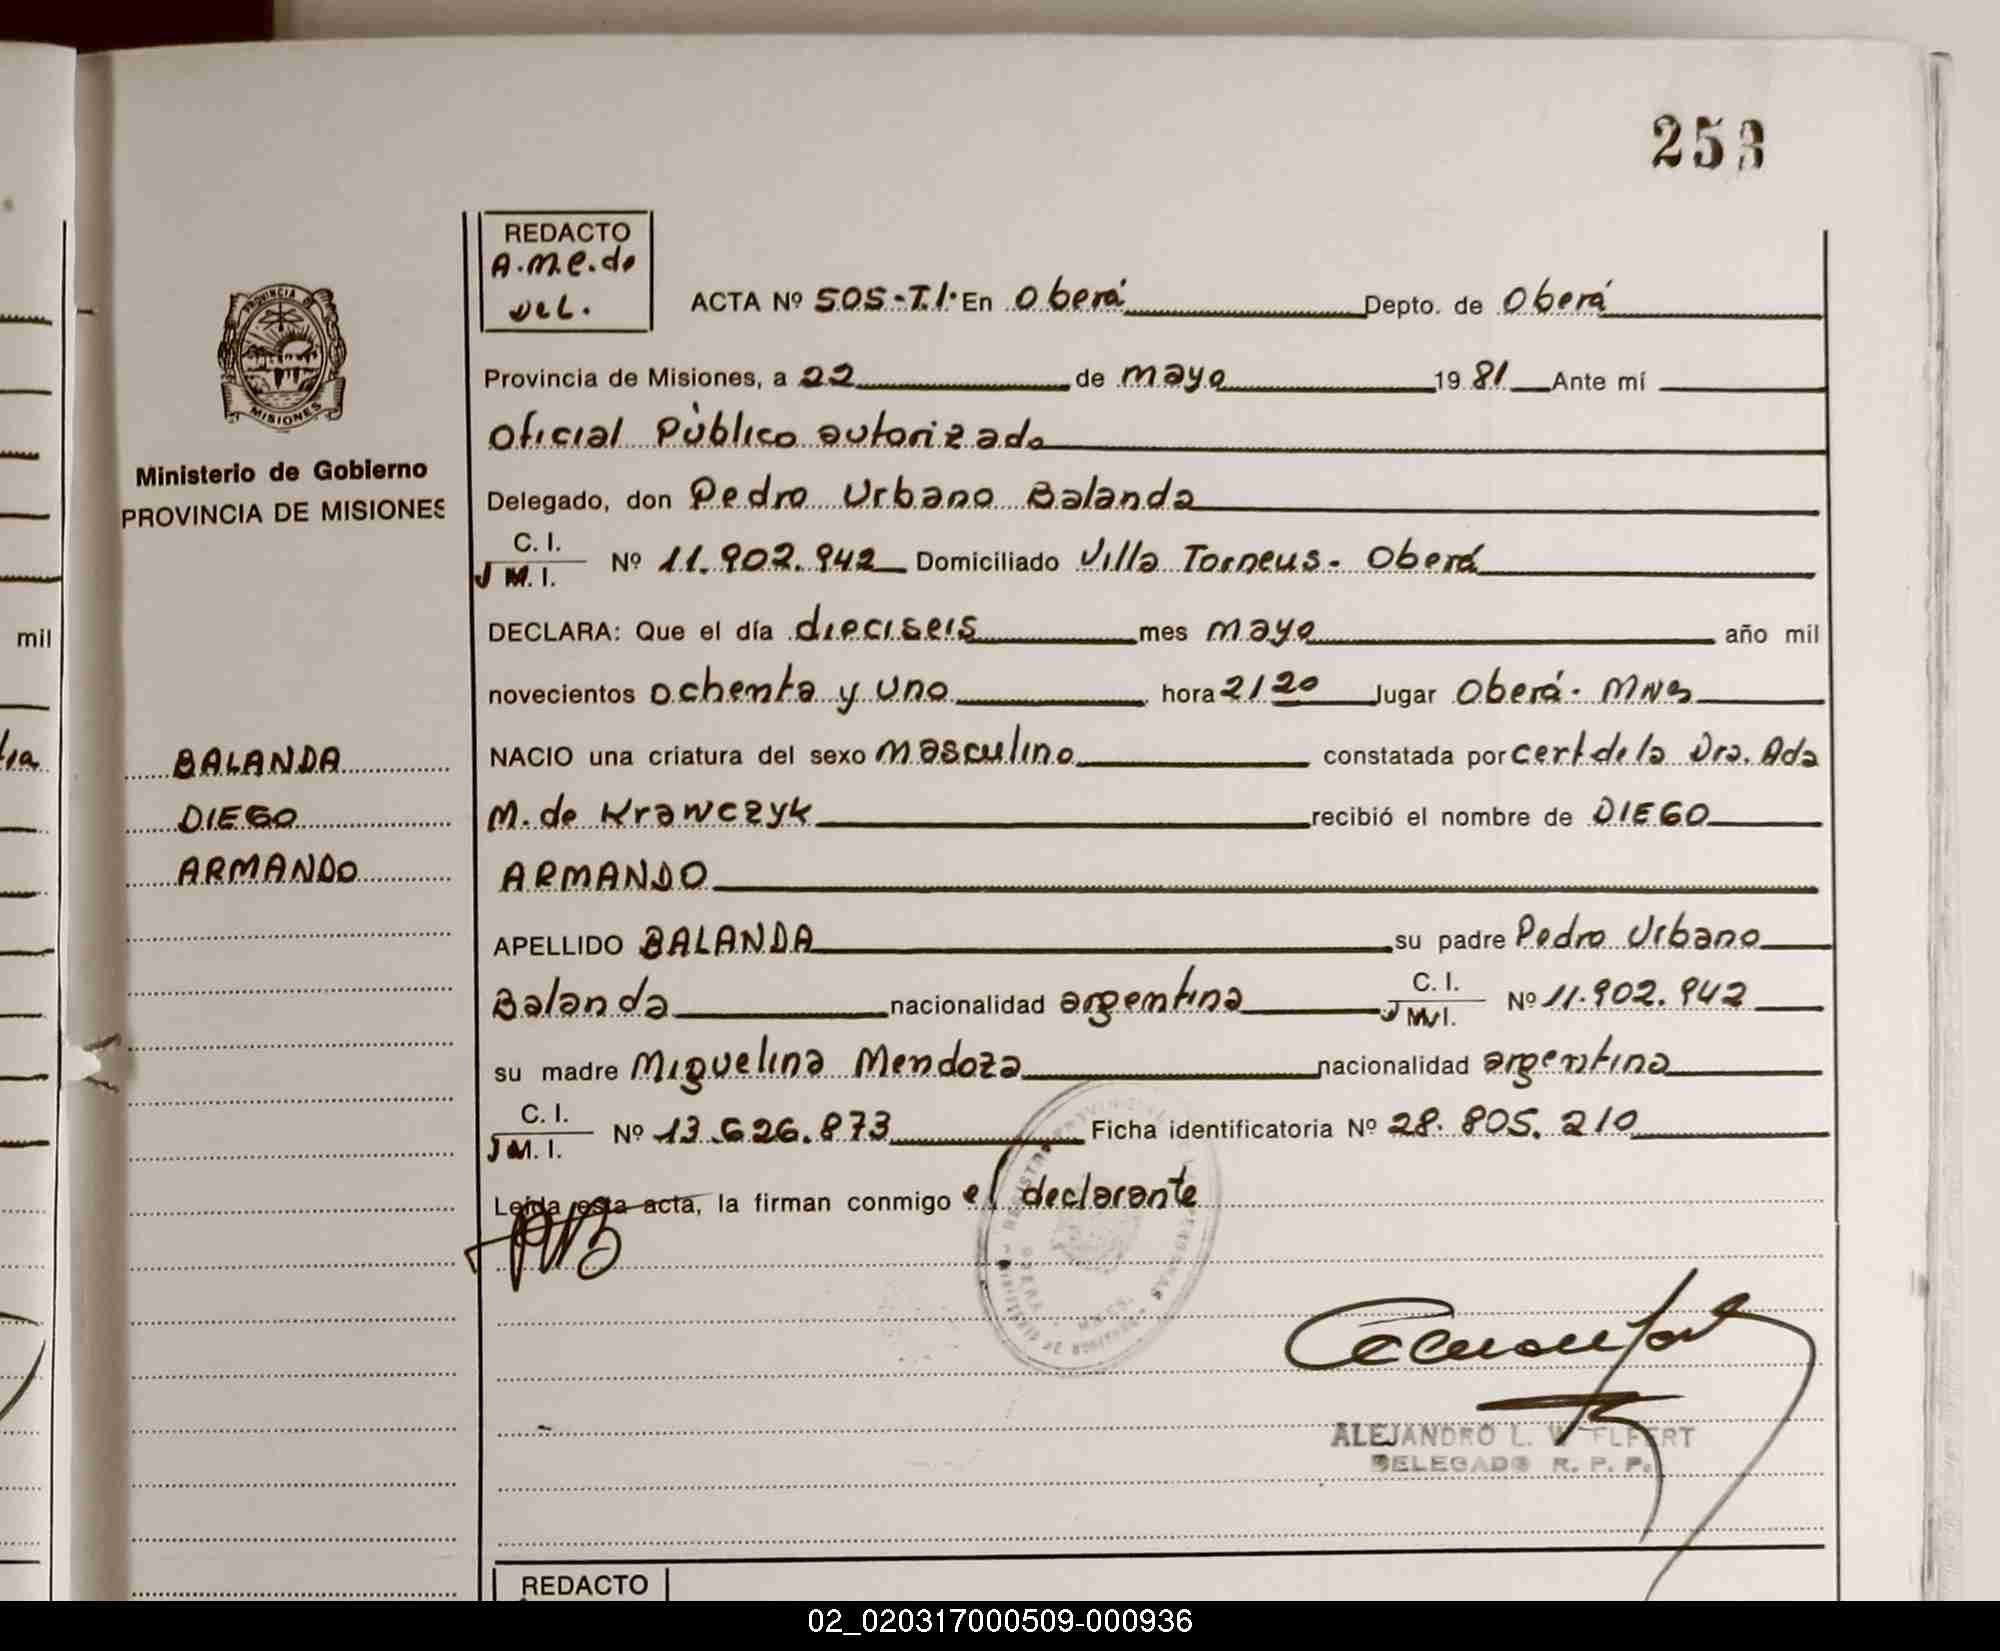 253
REDACTO
A.M.C.do
vel.
ACTA Nº 505.-T.I. En Oberá Depto. de Oberá
Provincia de Misiones, a 22 de mayo 1981 Ante mí
Oficial Público autorizado
Delegado, don Pedro Urbano Balanda
C. I.
M. I. Nº 11.902.942 Domiciliado Villa Torneus - Oberá
DECLARA: Que el día dieciseis mes mayo año mil
novecientos ochenta y uno hora 21 20 lugar Oberá - Mnes
NACIO una criatura del sexo masculino constatada por cert de la Dra. Ada
M. de Krawczyk recibió el nombre de DIEGO
ARMANDO
APELLIDO BALANDA su padre Pedro Urbano
Balanda nacionalidad argentina C. I. M. I. Nº 11.902.942
su madre Miguelina Mendoza nacionalidad argentina
C. I.
M. I. Nº 13.626.873 Ficha identificatoria Nº 28.805.210
Leída esta acta, la firman conmigo el declarante
ALEJANDRO L. W
DELEGADO R. P. P.
REDACTO
PROVINCIA DE
MISIONES
Ministerio de Gobierno
PROVINCIA DE MISIONES
BALANDA
DIEGO
ARMANDO
mil
02_020317000509-000936